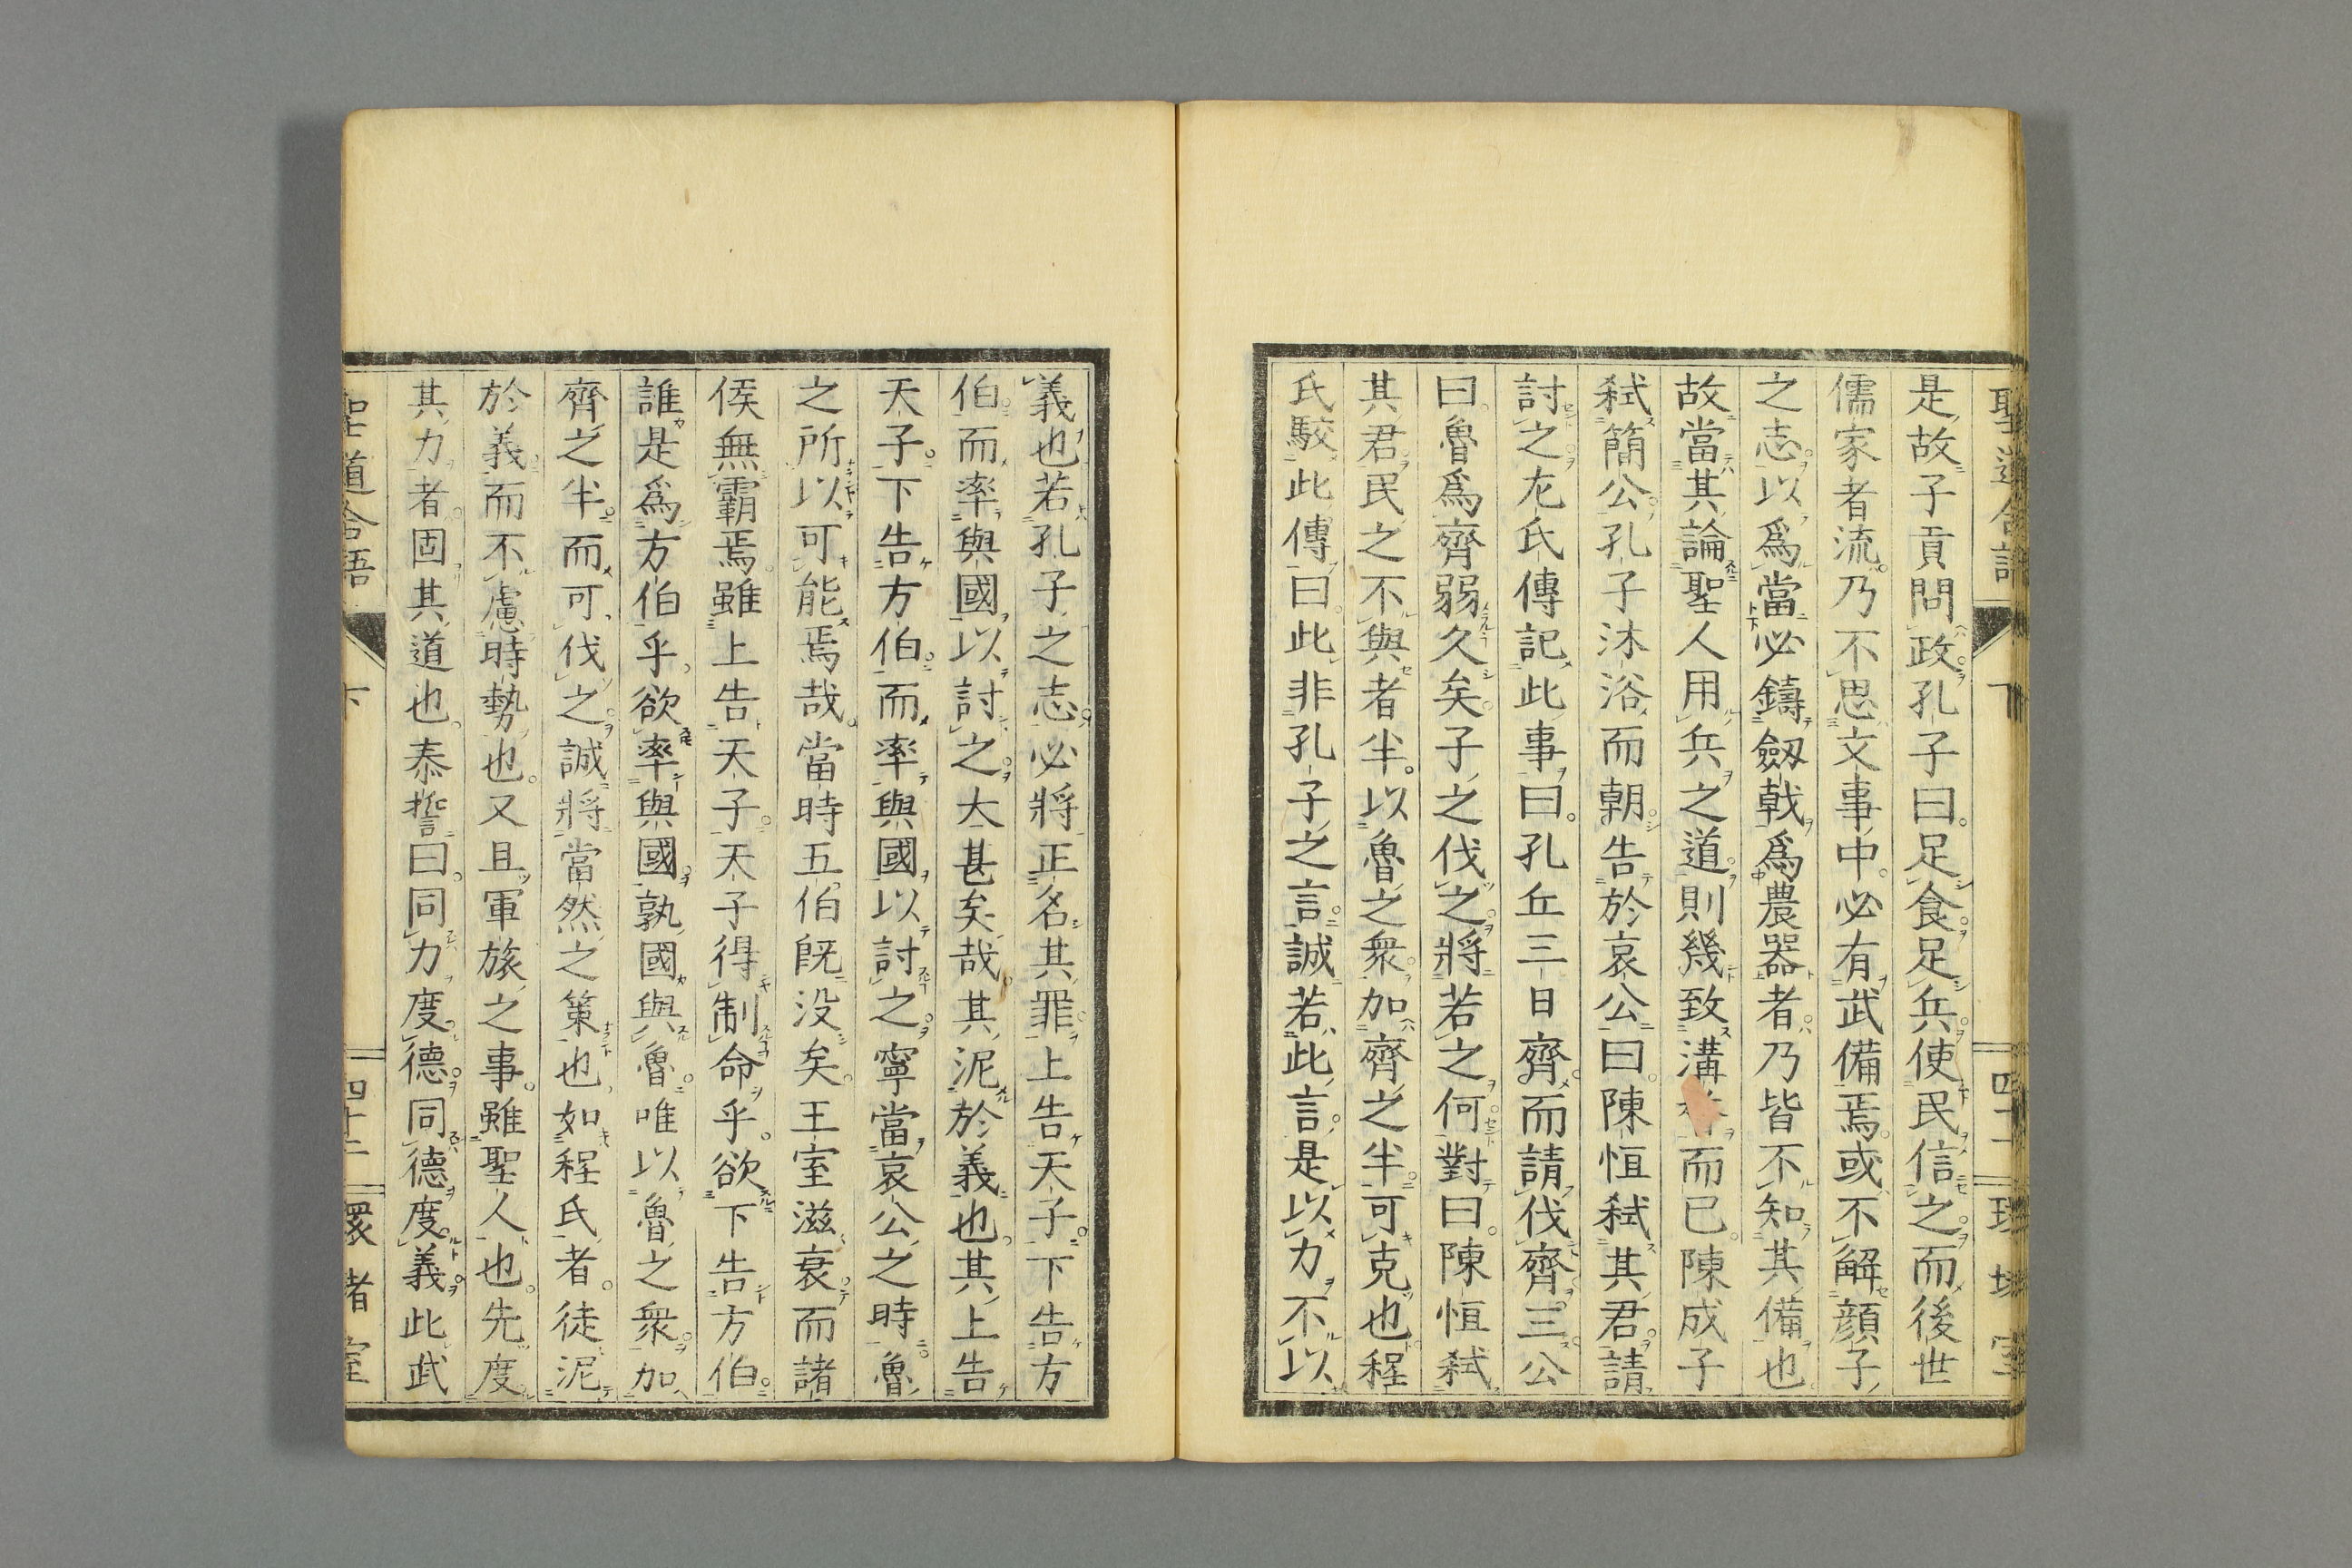 聖道合語 下 四十一
是故子貢問政孔子曰足食足兵使民信之而後世
儒家者流乃不思文事中必有武備焉或不解顔子
之志以爲當必鑄劔戟爲農器者乃皆不知其備也
故當其論聖人用兵之道則幾致溝而已陳成子
弑簡公孔子沐浴而朝告於哀公曰陳恒弑其君請
討之左氏傳記此事曰孔丘三日齊而請伐齊三公
曰魯爲齊弱久矣子之伐之將若之何對曰陳恒弑
其君民之不與者半以魯之衆加齊之半可克也程
氏駮此傳曰此非孔子之言誠若此言是以力不以
義也若孔子之志必將正名其罪上告天子下告方
伯而率與國以討之大甚矣哉其泥於義也其上告
天子下告方伯而率與國以討之寧當哀公之時魯
之所以可能焉哉當時五伯既没矣王室滋衰而諸
侯無霸焉雖上告天子天子得制命乎欲下告方伯
誰是爲方伯乎欲率與國孰國與魯唯以魯之衆加
齊之半而可伐之誠將當然之策也如程氏者徒泥
於義而不慮時勢也又且軍旅之事雖聖人也先度
其力者固其道也泰誓曰同力度德同德度義此武
聖道合語 下 四十二 環堵室